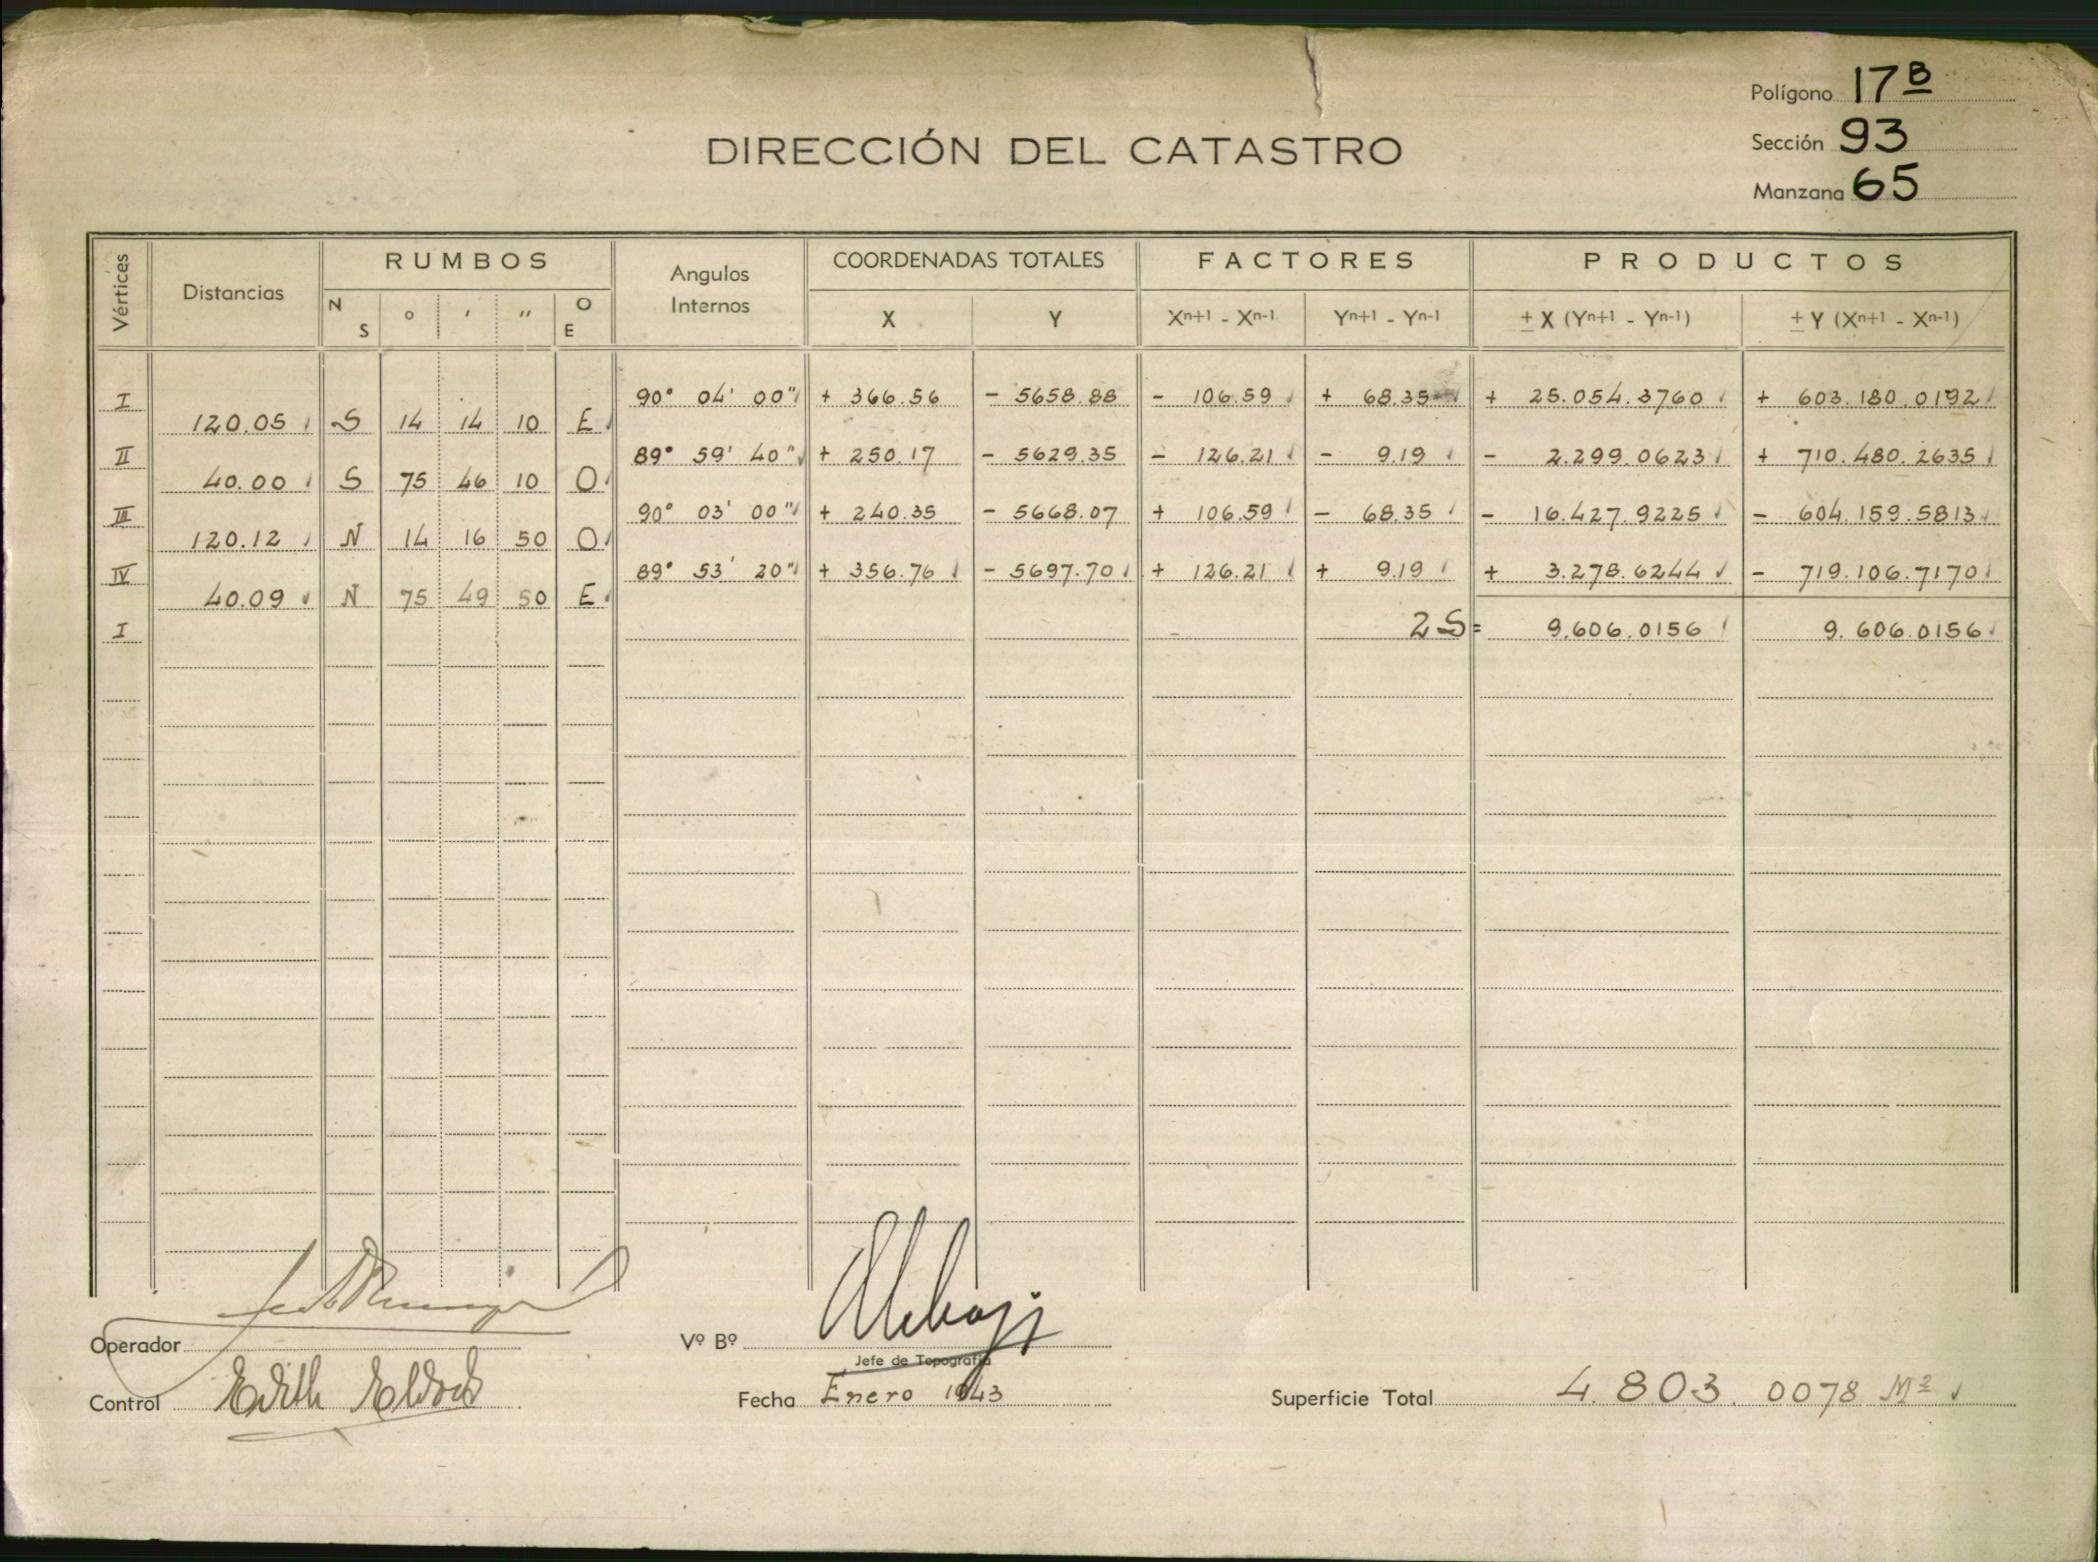 Polígono 17 B
DIRECCIÓN DEL CATASTRO
Sección 93
Manzana 65
Vértices Distancias RUMBOS Angulos Internos COORDENADAS TOTALES FACTORES PRODUCTOS
N S ° ' " O E X Y Xn+1 - Xn-1 Yn+1 - Yn-1 ± X (Yn+1 - Yn-1) ± Y (Xn+1 - Xn-1)
I 90° 04' 00" + 366.56 - 5658.88 - 106.59 + 68.35 + 25.054.3760 + 603.180.0192
120.05 S 14 14 10 E
II 89° 59' 40" + 250.17 - 5629.35 - 126.21 - 9.19 - 2.299.0623 + 710.480.2635
40.00 S 75 46 10 O
III 90° 03' 00" + 240.35 - 5668.07 + 106.59 - 68.35 - 16.427.9225 - 604.159.5813
120.12 N 14 16 50 O
IV 89° 53' 20" + 356.76 - 5697.70 + 126.21 + 9.19 + 3.278.6244 - 719.106.7170
40.09 N 75 49 50 E
I 2S= 9.606.0156 9.606.0156
Operador
Vº Bº
Jefe de Topografía
Control Edith
Fecha Enero 1943
Superficie Total 4.803.0078 M²